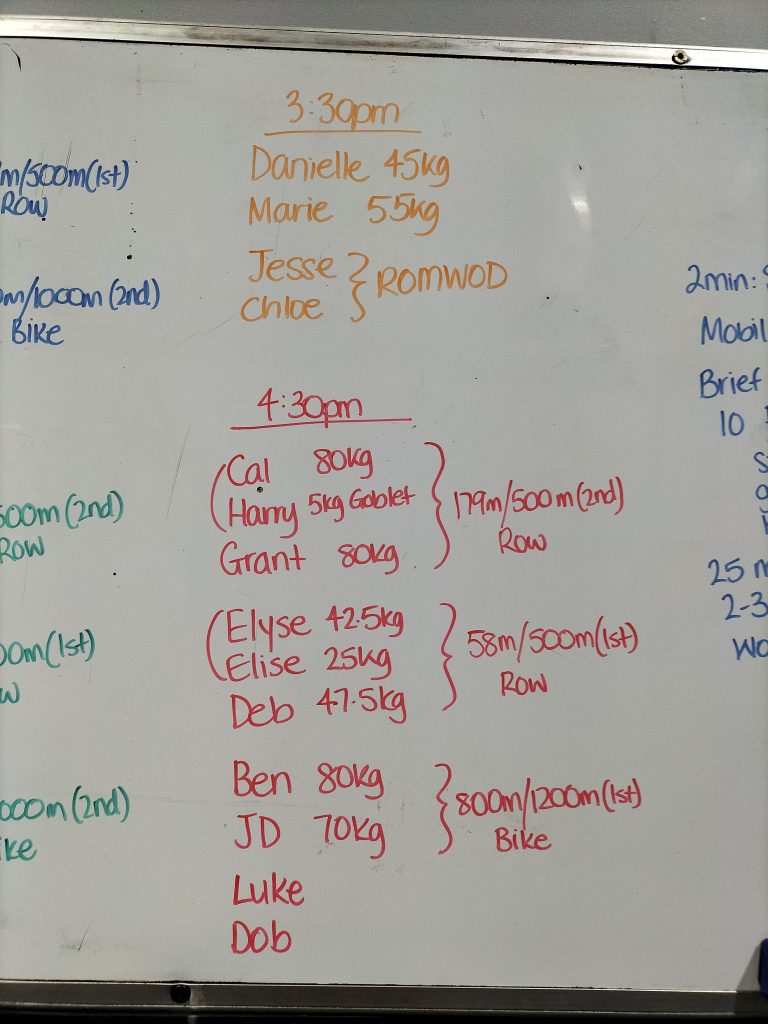 3:30pm
Danielle 45kg
Marie 55kg
Jesse } ROMWOD
Chloe
4:30pm
Cal 80kg
Harry 5kg Goblet
Grant 80kg
179m/500m(2nd)
Row
Elyse 42.5kg
Elise 25kg
Deb 47.5kg
58m/500m(1st)
Row
Ben 80kg
JD 70kg
800m/1200m(1st)
Bike
Luke
Dob
m/500m(1st)
Row
m/1000m(2nd)
Bike
500m(2nd)
Row
00m(1st)
000m(2nd)
2min:
Brief
10
25
2-3